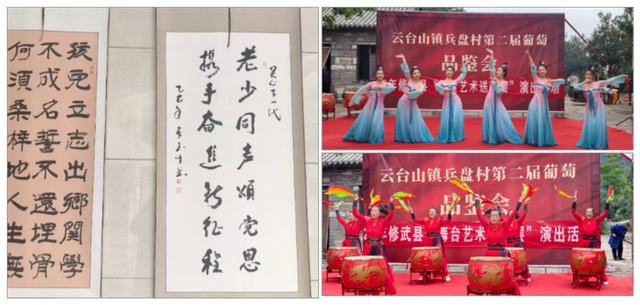 孩兒立志出鄉關學
不成名誓不還埋骨
何須桑梓地人生無
老少同聲頌党恩
攜手奮進新征程
乙巳年
云台山镇兵盘村第二届葡萄
品鉴会
年修武县 艺术送 演出活动
云台山镇兵盘村第二届葡萄
品鉴会
年修武县 舞台艺术 演出活